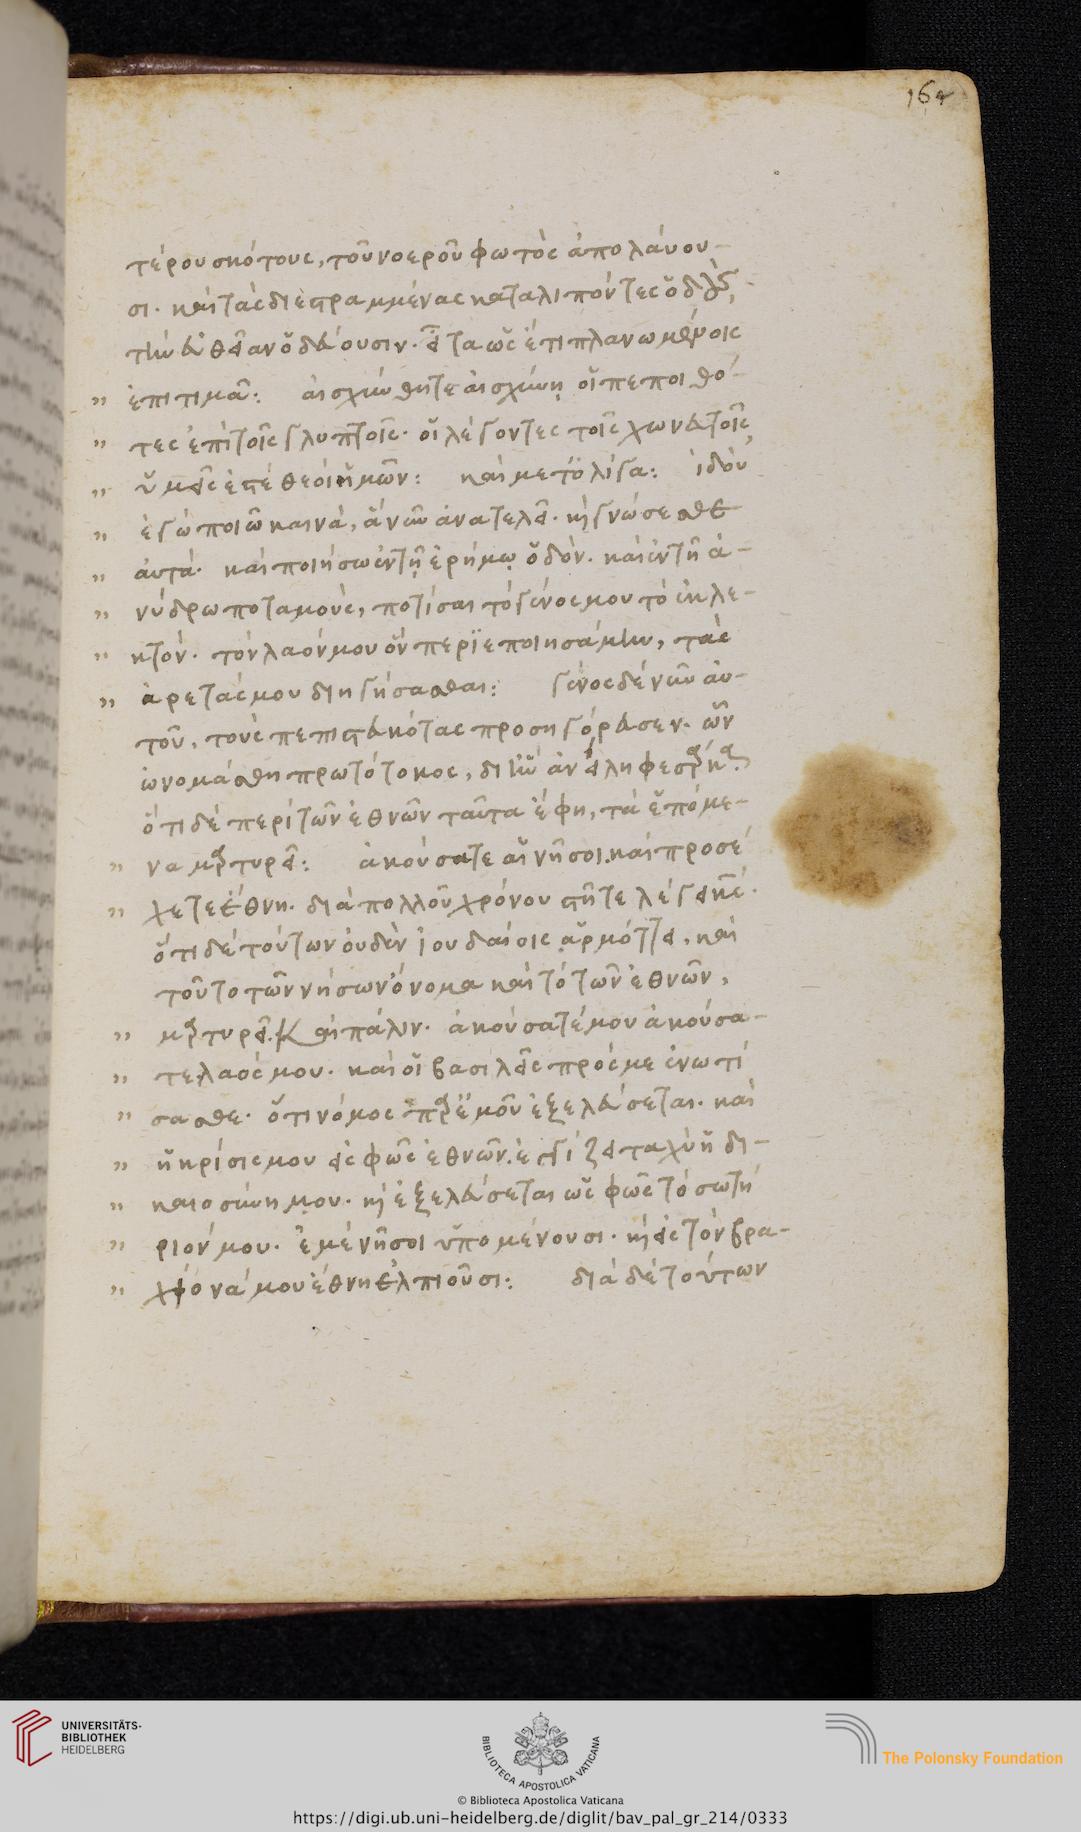 164
τέρου σκότους, τοῦ νοεροῦ φωτὸς ἀπολάυου-
σι. καὶ τὰς διεστραμμένας καταλιπόντες ὁδοὺς,
τὴν ἀθείαν ὁδεύουσιν. εἶτα ὡς ἔτι πλανωμένοις
" ἐπιτιμᾶ: αἰσχύνθητε αἰσχύνη οἱ πεποιθό-
" τες ἐπὶ τοῖς γλυπτοῖς. οἱ λέγοντες τοῖς χωνευτοῖς,
" ὑμεῖς ἐστέ θεοὶ ἡμῶν: καὶ μετ' ὀλίγα: ἰδοὺ
" ἐγὼ ποιῶ καινὰ, ἃ νῦν ἀνατελεῖ. καὶ γνώσεσθε
" ἀυτά. καὶ ποιήσω ἐν τῇ ἐρήμω ὁδὸν. καὶ ἐν τῇ ἀ-
" νύδρω ποταμοὺς, ποτίσαι τὸ γένος μου τὸ ἐκλε-
" κτόν. τὸν λαόν μου ὃν περϊεποιησάμην, τὰς
" ἀρετάς μου διηγήσασθαι: γένος δέ νῦν ἀυ-
τοῦ, τοὺς πεπιστευκότας προσηγόρευσεν. ὧν
ὠνομάσθη πρωτότοκος, δι ἣν ἀνείληφε σάρκα.
ὅτι δὲ περὶ τῶν ἐθνῶν ταῦτα ἔφη, τὰ ἑπόμε-
" να μαρτυρεῖ: ἀκούσατε αἱ νῆσοι. καὶ προσέ
" χετε ἔθνη. διὰ πολλοῦ χρόνου στήτε λέγει κς.
ὅτι δὲ τούτων ὀυδὲν ἰουδαίοις ἁρμόττει, καὶ
τοῦτο τῶν νήσων ὄνομα καὶ τὸ τῶν ἐθνῶν,
" μαρτυρεῖ. Καὶ πάλιν. ἀκούσατέ μου ἀκούσα-
" τε λαός μου. καὶ οἱ βασιλεῖς πρός με ἐνωτί
" σασθε. ὅτι νόμος παρ' ἐμοῦ ἐξελεύσεται. καὶ
" ἡ κρίσις μου εἰς φῶς ἐθνῶν. ἐγγίζει ταχὺ ἡ δι-
" καιοσύνη μου. καὶ ἐξελεύσεται ὡς φῶς τὸ σωτή
" ριόν μου. ἐμὲ νῆσοι ὑπομένουσι. καὶ εἰς τὸν βρα-
" χίονά μου ἔθνη ἐλπιοῦσι: διὰ δὲ τούτων
UNIVERSITÄTS-
BIBLIOTHEK
HEIDELBERG
BIBLIOTECA APOSTOLICA VATICANA
The Polonsky Foundation
© Biblioteca Apostolica Vaticana
https://digi.ub.uni-heidelberg.de/diglit/bav_pal_gr_214/0333